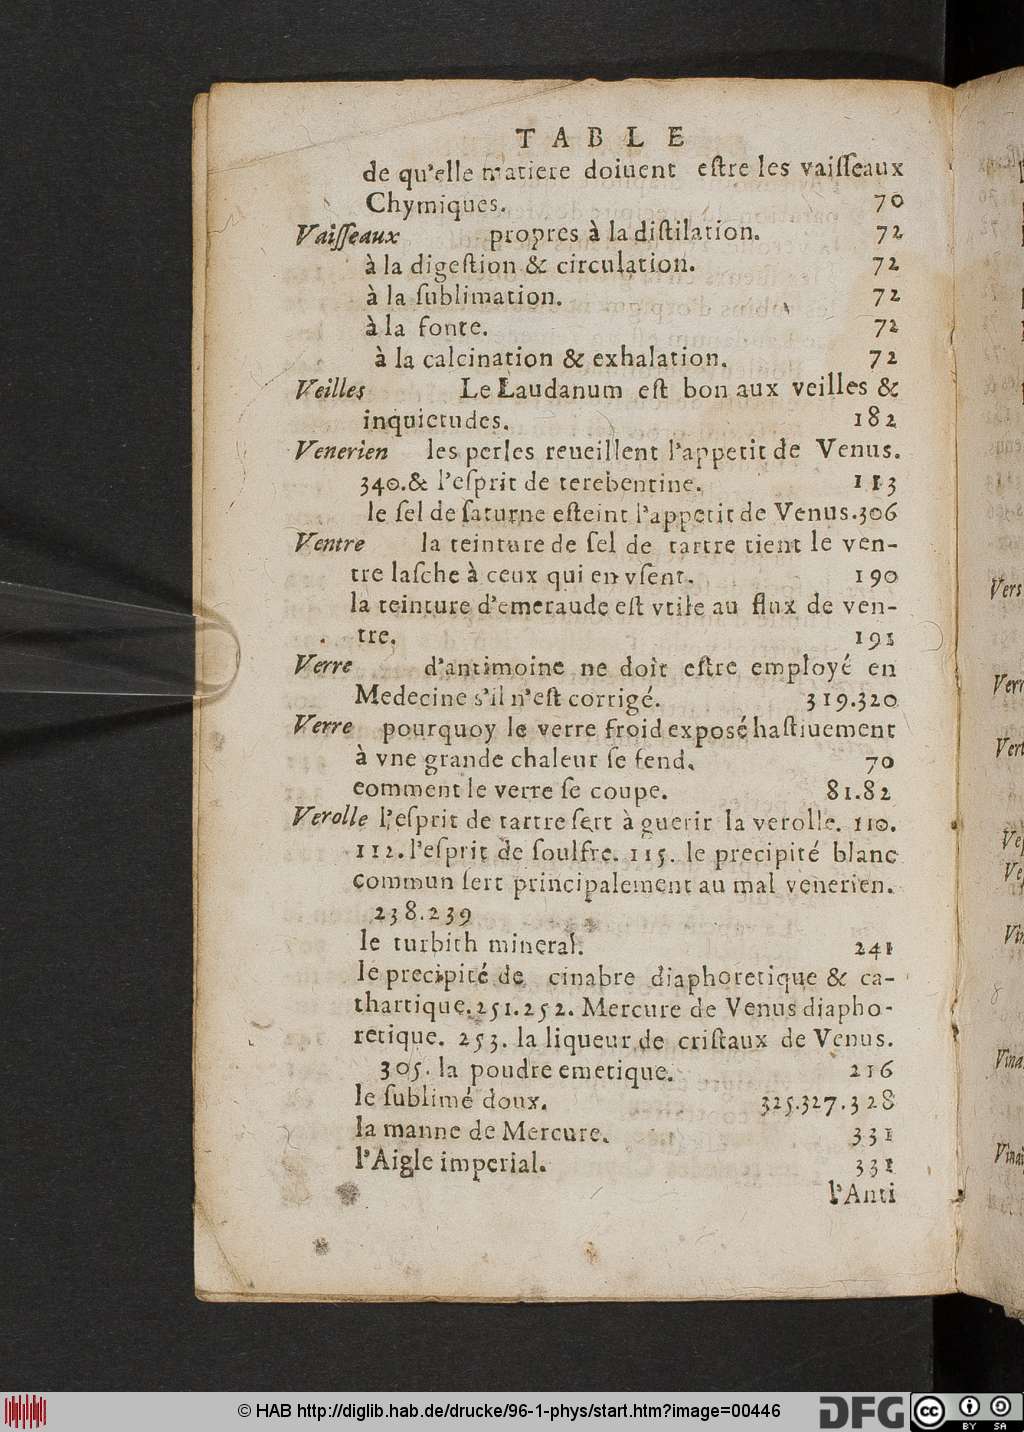 TABLE
de qu'elle matiere doiuent estre les vaisseaux
Chymiques. 70
Vaisseaux propres à la distilation. 72
à la digestion & circulation. 72
à la sublimation. 72
à la fonte. 72
à la calcination & exhalation. 72
Veilles Le Laudanum est bon aux veilles &
inquietudes. 182
Venerien les perles reueillent l'appetit de Venus.
340.& l'esprit de terebentine. 113
le sel de saturne esteint l'appetit de Venus.306
Ventre la teinture de sel de tartre tient le ven-
tre lasche à ceux qui en vsent. 190
la teinture d'emeraude est vtile au flux de ven-
tre. 191
Verre d'antimoine ne doit estre employé en
Medecine s'il n'est corrigé. 319.320
Verre pourquoy le verre froid exposé hastiuement
à vne grande chaleur se fend. 70
comment le verre se coupe. 81.82
Verolle l'esprit de tartre sert à guerir la verolle. 110.
112. l'esprit de soulfre. 115. le precipité blanc
commun sert principalement au mal venerien.
238.239
le turbith mineral. 241
le precipité de cinabre diaphoretique & ca-
thartique.251.252. Mercure de Venus diapho-
retique. 253. la liqueur de cristaux de Venus.
305. la poudre emetique. 216
le sublimé doux. 325.327.328
la manne de Mercure. 331
l'Aigle imperial. 331
l'Anti
Vers
Verr
Vert
Vin
Vina
Vinai
© HAB http://diglib.hab.de/drucke/96-1-phys/start.htm?image=00446
DFG
cc BY SA